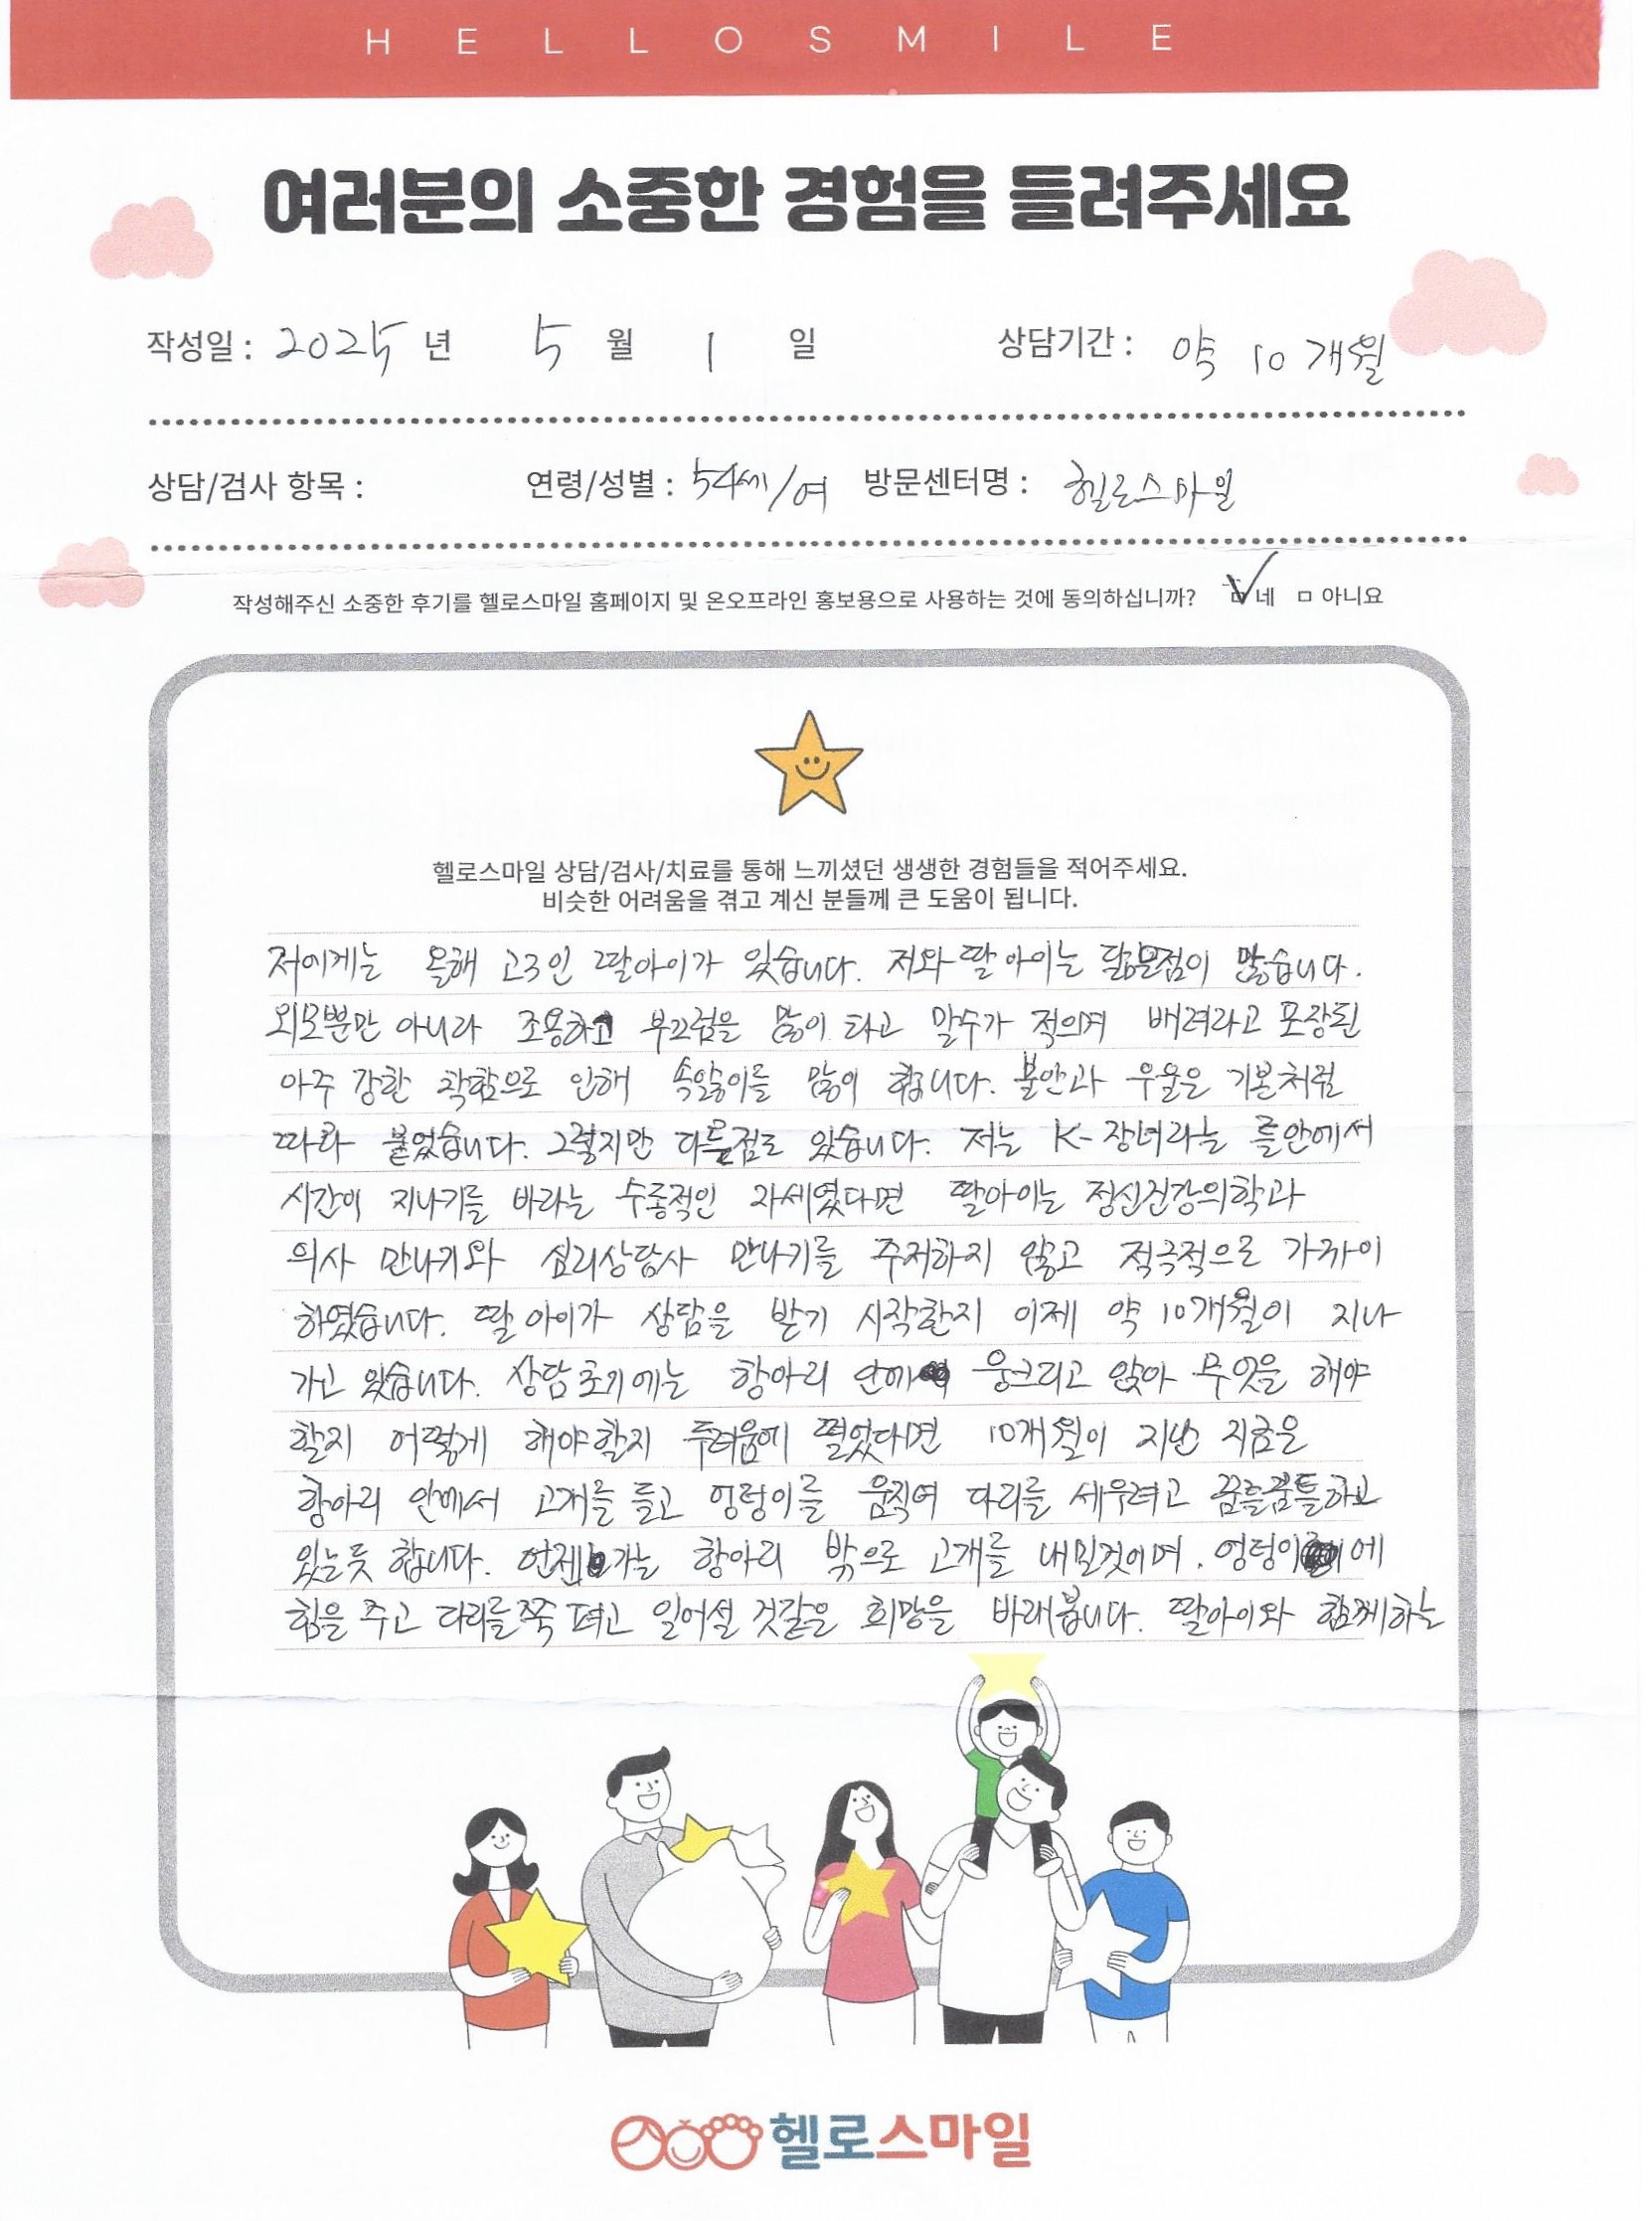 HELLOSMILE
여러분의 소중한 경험을 들려주세요
작성일 : 2025 년 5 월 1 일 상담기간 : 약 10 개월
상담/검사 항목 : 연령/성별 : 54세/여 방문센터명 : 헬로스마일
작성해주신 소중한 후기를 헬로스마일 홈페이지 및 온오프라인 홍보용으로 사용하는 것에 동의하십니까? ☑ 네 ㅁ 아니요
헬로스마일 상담/검사/치료를 통해 느끼셨던 생생한 경험들을 적어주세요.
비슷한 어려움을 겪고 계신 분들께 큰 도움이 됩니다.
저에게는 올해 고3인 딸아이가 있습니다. 저와 딸아이는 닮은점이 많습니다.
외모뿐만 아니라 조용하고 부끄럼을 많이 타고 말수가 적으며 배려라고 포장된
아주 강한 착함으로 인해 속앓이를 많이 합니다. 불안과 우울은 기본처럼
따라 붙었습니다. 그렇지만 다른점도 있습니다. 저는 K-장녀라는 틀안에서
시간이 지나기를 바라는 수동적인 자세였다면 딸아이는 정신건강의학과
의사 만나기와 심리상담사 만나기를 주저하지 않고 적극적으로 가까이
하였습니다. 딸아이가 상담을 받기 시작한지 이제 약 10개월이 지나
가고 있습니다. 상담초기에는 항아리 안에 웅크리고 앉아 무엇을 해야
할지 어떻게 해야할지 두려움에 떨었다면 10개월이 지난 지금은
항아리 안에서 고개를 들고 엉덩이를 움직여 다리를 세우려고 꿈틀꿈틀하고
있는듯 합니다. 언젠가는 항아리 밖으로 고개를 내밀것이며, 엉덩이에
힘을 주고 다리를 쭉 펴고 일어설 것같은 희망을 바래봅니다. 딸아이와 함께하는
헬로스마일